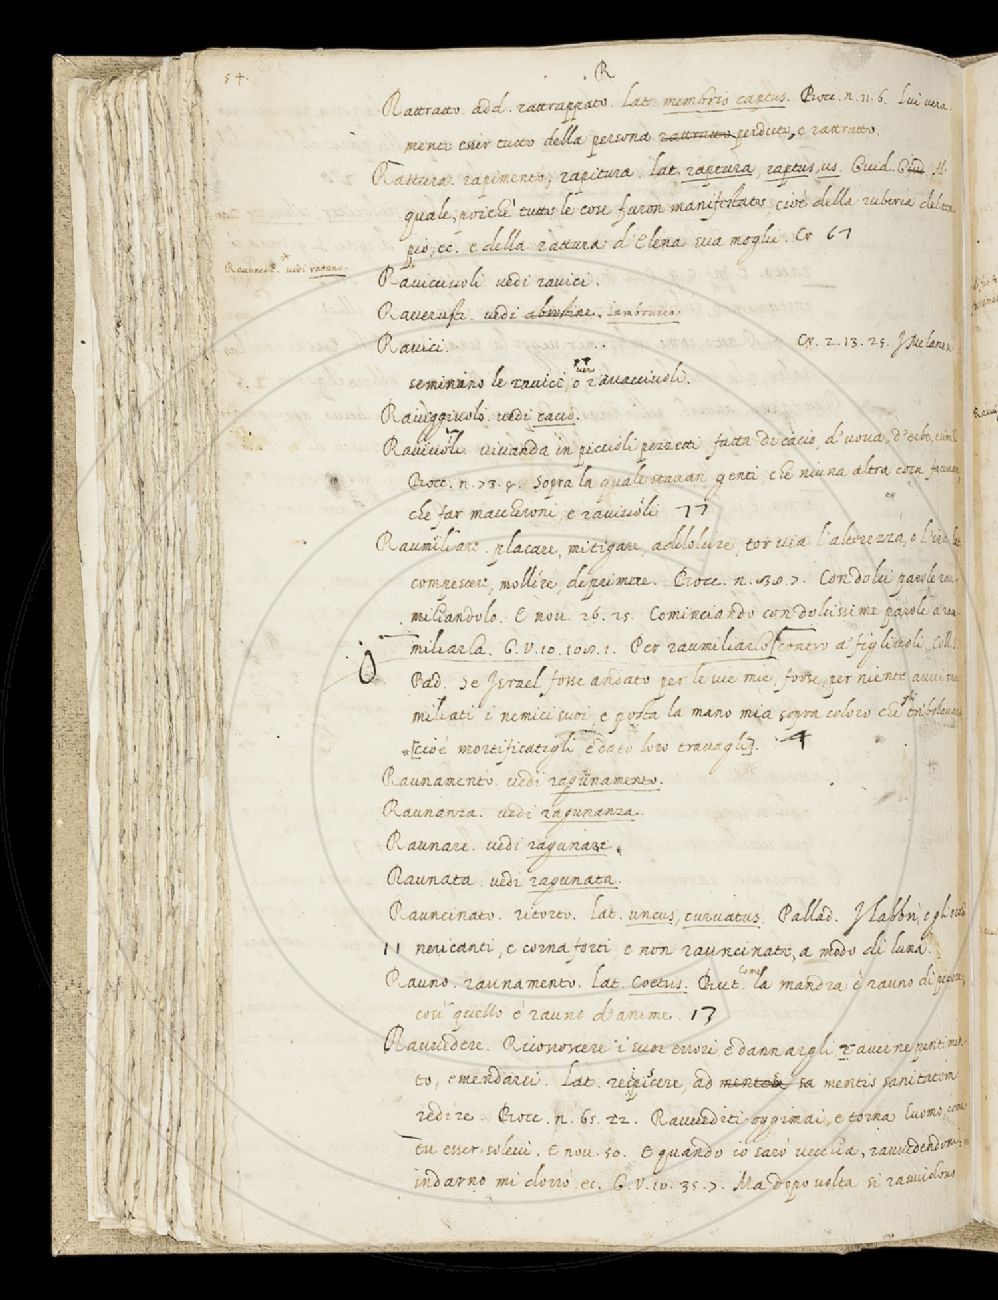 54.
R
Rattratto. add. rattrappato. Lat. membris captus. Bocc. n. 11. 6. Lui vera
mente esser tutto della persona rattratto perduto, e rattratto.
Rattura. rapimento, rapitura. Lat. raptura, raptus, us. Guid. Giud. Il
quale, poichè tutte le cose furon manifestate, cioè della ruberia del te
pio, ec. e della rattura d'Elena sua moglie. Cr 67
Raunare. vedi
Raviciuoli vedi ravici.
Raverusti. vedi abrostine. Lambrusca
Ravici. Cr. 2. 13. 25. In
seminano le ravici, o vero ravacciuoli.
Raviggiuolo. vedi cacio.
Raviuoli. vivanda in piccioli pezzetti fatta di cacio, d'uova, d'erbe, e simili
Bocc. n. 73. 4. Sopra la quale stavan genti, che niuna altra cosa facevan,
che far maccheroni, e raviuoli 77
Raumiliare. placare, mitigare, addolcire, tor via l'alterezza, o l'ira. Lat.
compescere, mollire, deprimere. Bocc. n. 30. 7. Con dolci parole rau
miliandolo. E nov. 26. 25. Cominciando con dolcissime parole a rau
miliarla. G. V. 10. 108. 1. Per raumiliarlo [contro a' figliuoli. Coll.
Pad. Se Israel fosse andato per le vie mie, forse per niente avrei rau
miliati i nemici suoi, e posta la mano mia sopra coloro che gli tribolavano
[cioè mortificatigli, e dato loro travagli]. 4
Raunamento. vedi ragunamento.
Raunanza. vedi ragunanza.
Raunare. vedi ragunare.
Raunata. vedi ragunata.
Rauncinato. ritorto. Lat. uncus, curvatus. Pallad. I labbri, e gli occhi
11 nericanti, e corna forti e non rauncinate, a modo di luna.
Rauno. raunamento. Lat. Coetus. But. Come la mandra è rauno di pecore,
così quello è rauno d'anime. 17
Ravvedere. Riconoscere i suoi errori e dannargli e averne pentimen
to, emendarci. Lat. resipiscere, ad mentem sa mentis sanitatem
redire. Bocc. n. 65. 22. Ravvediti oggimai, e torna huomo, come
tu esser solevi. E nov. 50. E quando io sarò vecchia, ravvedendomi,
indarno mi dorrò, ec. G. V. 10. 35. 7. Ma dopo volta si ravvidono